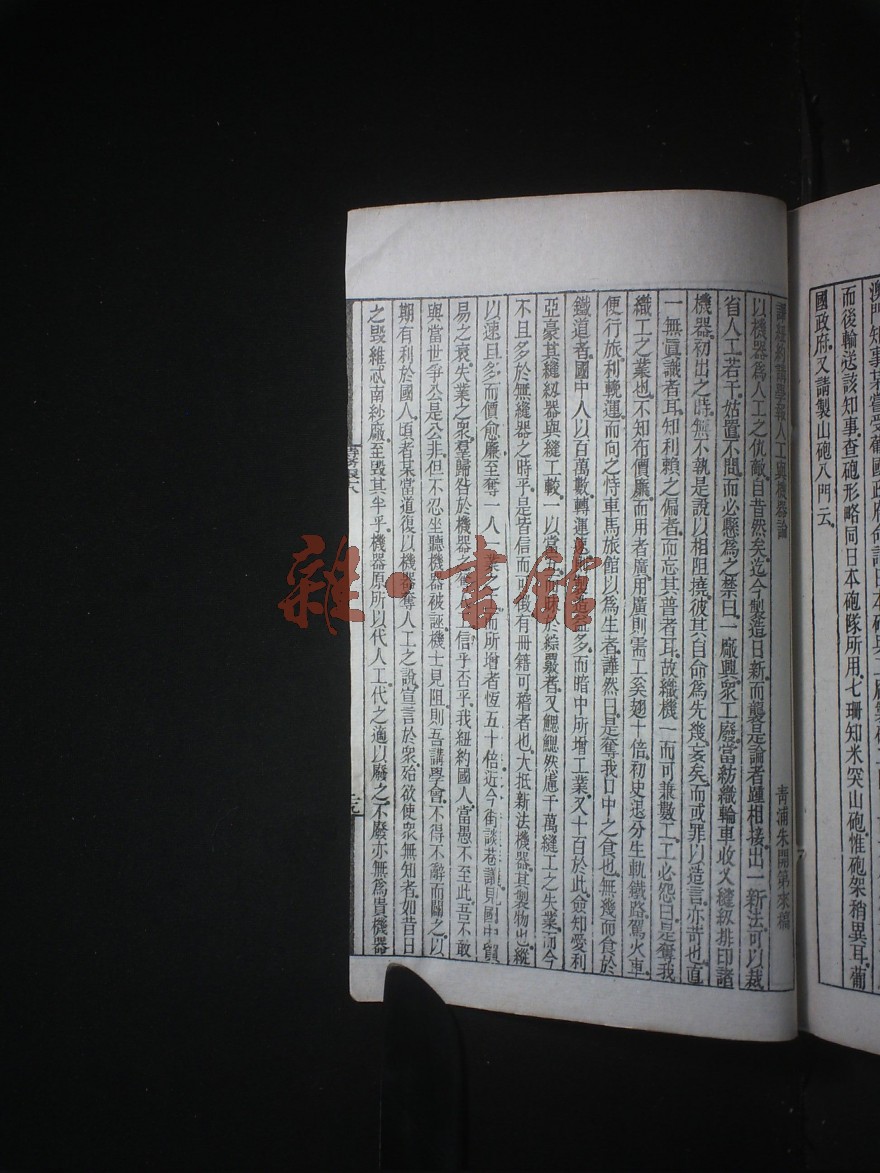 而後輸送該知事查砲形略同日本砲隊所用七珊知米突山砲惟砲架稍異耳葡
國政府又請製山砲八門云
譯紐約講學報人工與機器論
青浦朱開第來稿
以機器爲人工之仇敵自昔然矣迄今製造日新而襲是論者踵相接出一新法可以裁
省人工若干姑置不問而必懸爲之禁曰一廠興衆工廢當紡織輪車收叉縫級排印諸
機器初出之時無不執是說以相阻撓彼其自命爲先幾妄矣而或罪以造言亦苛也直
一無眞識者耳知利賴之偏者而忘其普者耳故織機一而可兼數工工必怨曰是奪我
織工之業也不知布價廉而用者廣用廣則需工奚翅十倍初史
分生軌鐵路駕火車
便行旅利輓運而向之恃車馬旅館以爲生者譁然曰是奪我口中之食也無幾而食於
鐵道者國中人以百萬數轉運
製造益多而暗中所增工業又十百於此僉知愛利
亞豪其縫級器與縫工較一以當
於綜覈者又鰓鰓然慮千萬縫工之失業而今
不且多於無縫器之時乎是皆信而可徵有冊籍可稽者也大抵新法機器其製物也縱
以速且多而價愈廉至奪一人一業之
而所增者恆五十倍近今街談巷議見國中貿
易之衰失業之衆羣歸咎於機器之奪
信乎否乎我紐約國人當愚不至此吾不敢
與當世爭公是公非但不忍坐聽機器被誣機士見阻則吾講學會不得不辭而闢之以
期有利於國人頃者某當道復以機器奪人工之說宣言於衆殆欲使衆無知者如昔日
之毀維忒南紗廠至毀其半乎機器原所以代人工代之適以廢之不廢亦無爲貴機器
雜·書館